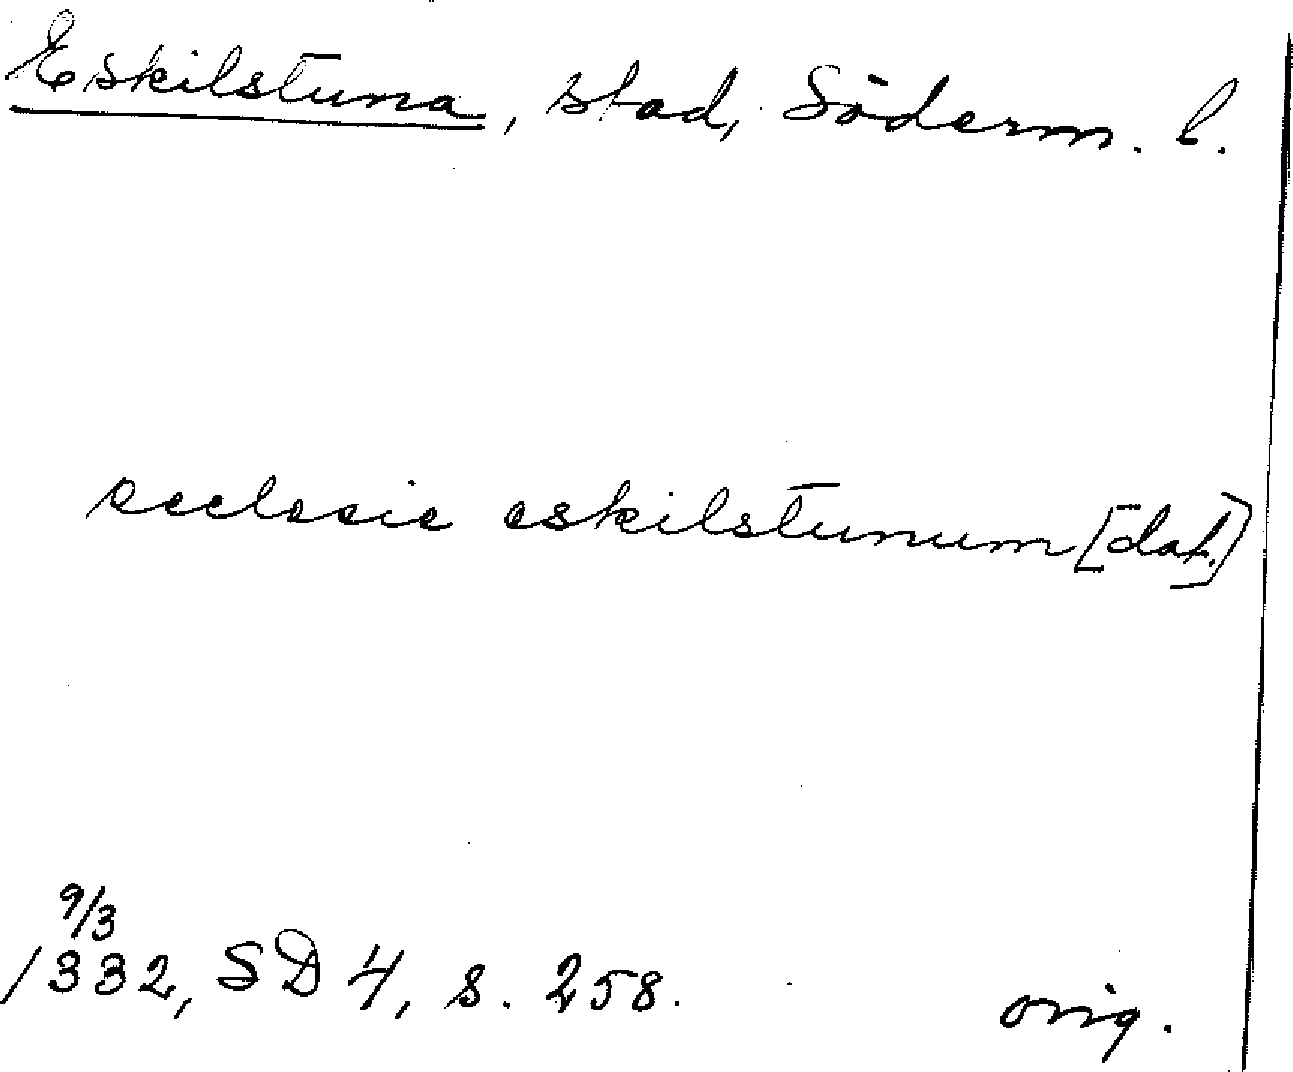 Eskilstuna, stad, Söderm. l.
ecclesie eskilstunum [dat.]
9/3
1332, SD 4, s. 258. orig.